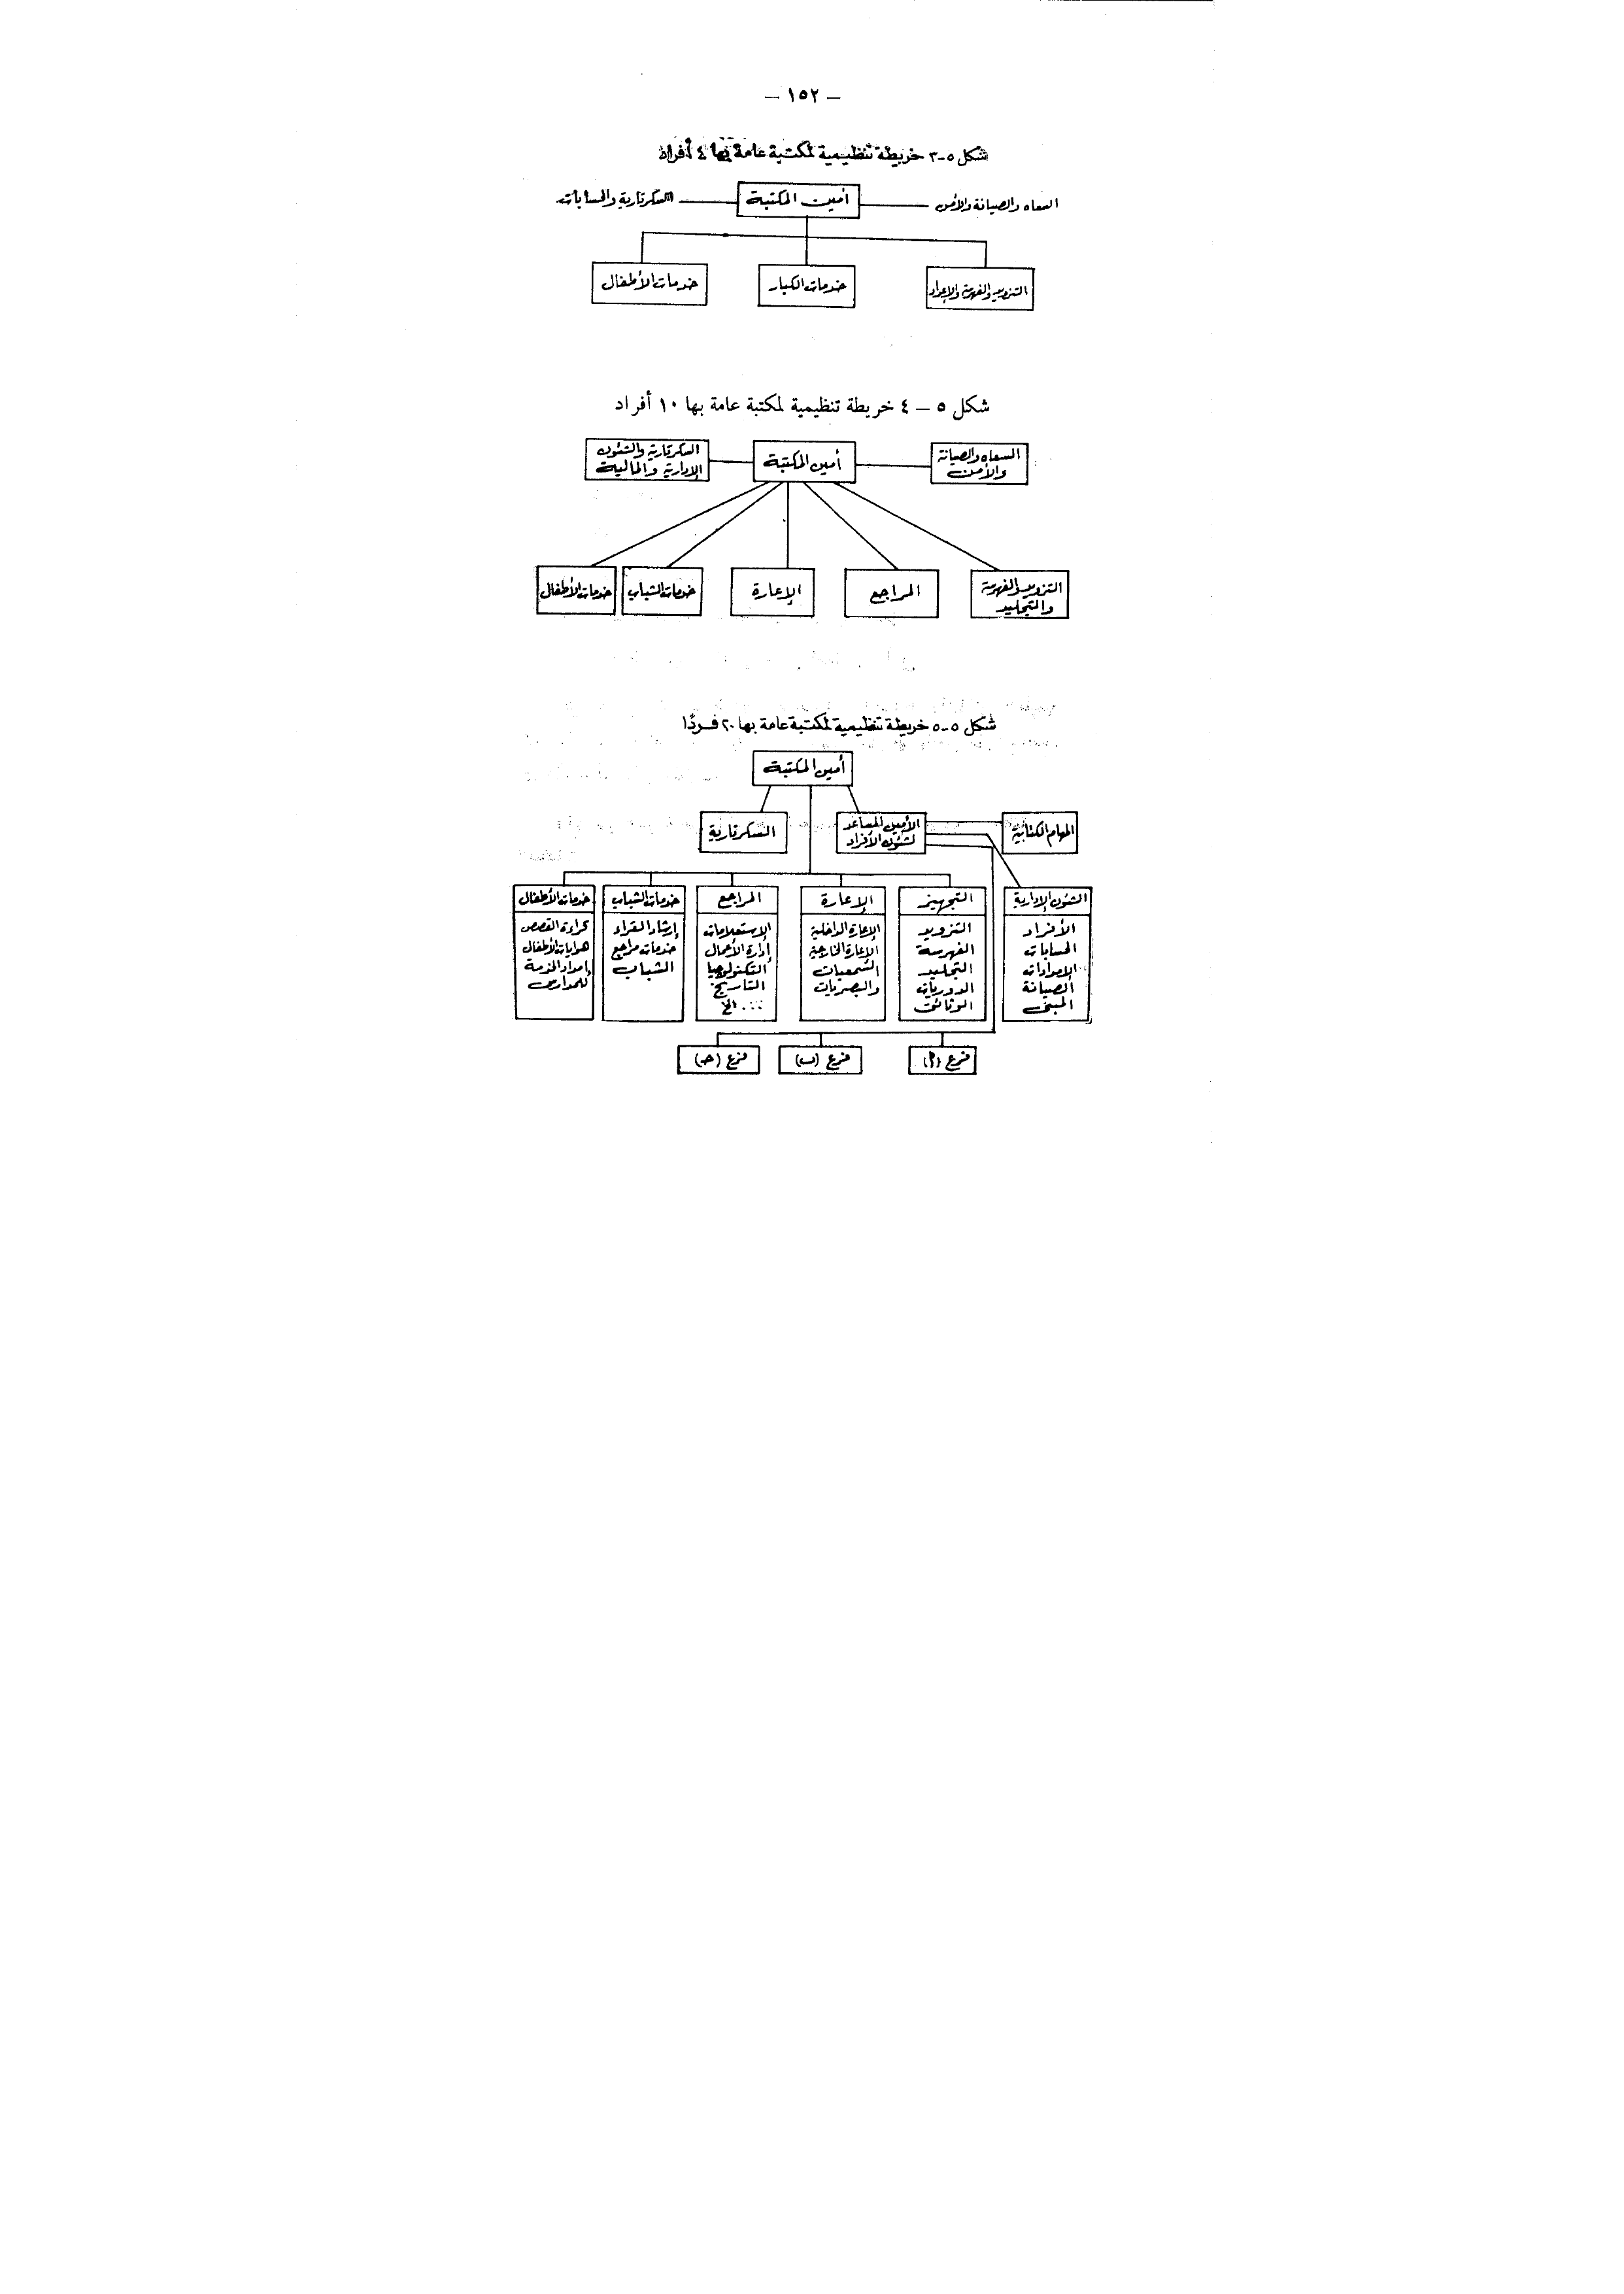 — ١٥٢ —
شكل ٥-٣ خريطة تنظيمية لمكتبة عامة بها ٤ أفراد
السعاه والصيانة والأمن
أمين المكتبة
السكرتارية والحسابات
التزويد والفهرسة والإعداد
خدمات الكبار
خدمات الأطفال
شكل ٥ – ٤ خريطة تنظيمية لمكتبة عامة بها ١٠ أفراد
السعاه والصيانة
والأمن
أمين المكتبة
السكرتارية والشئون
الإدارية والمالية
التزويد والفهرسة
والتجليد
المراجع
الإعارة
خدمات الشباب
خدمات الأطفال
شكل ٥-٥ خريطة تنظيمية لمكتبة عامة بها ٢٠ فردًا
أمين المكتبة
المهام الكتابية
الأمين المساعد
لشئون الأفراد
السكرتارية
الشئون الإدارية
الأفراد
الحسابات
الإمدادات
الصيانة
المبنى
التجهيز
التزويد
الفهرسة
التجليد
الدوريات
الوثائق
الإعارة
الإعارة الداخلية
الإعارة الخارجية
السمعيات
والبصريات
المراجع
الاستعلامات
إدارة الأعمال
التكنولوجيا
التاريخ
.... الخ
خدمات الشباب
إرشاد القراء
خدمات مراجع
الشباب
خدمات الأطفال
قراءة القصص
هوايات الأطفال
إمداد الخدمة
للمدارس
فرع (أ)
فرع (ب)
فرع (جـ)